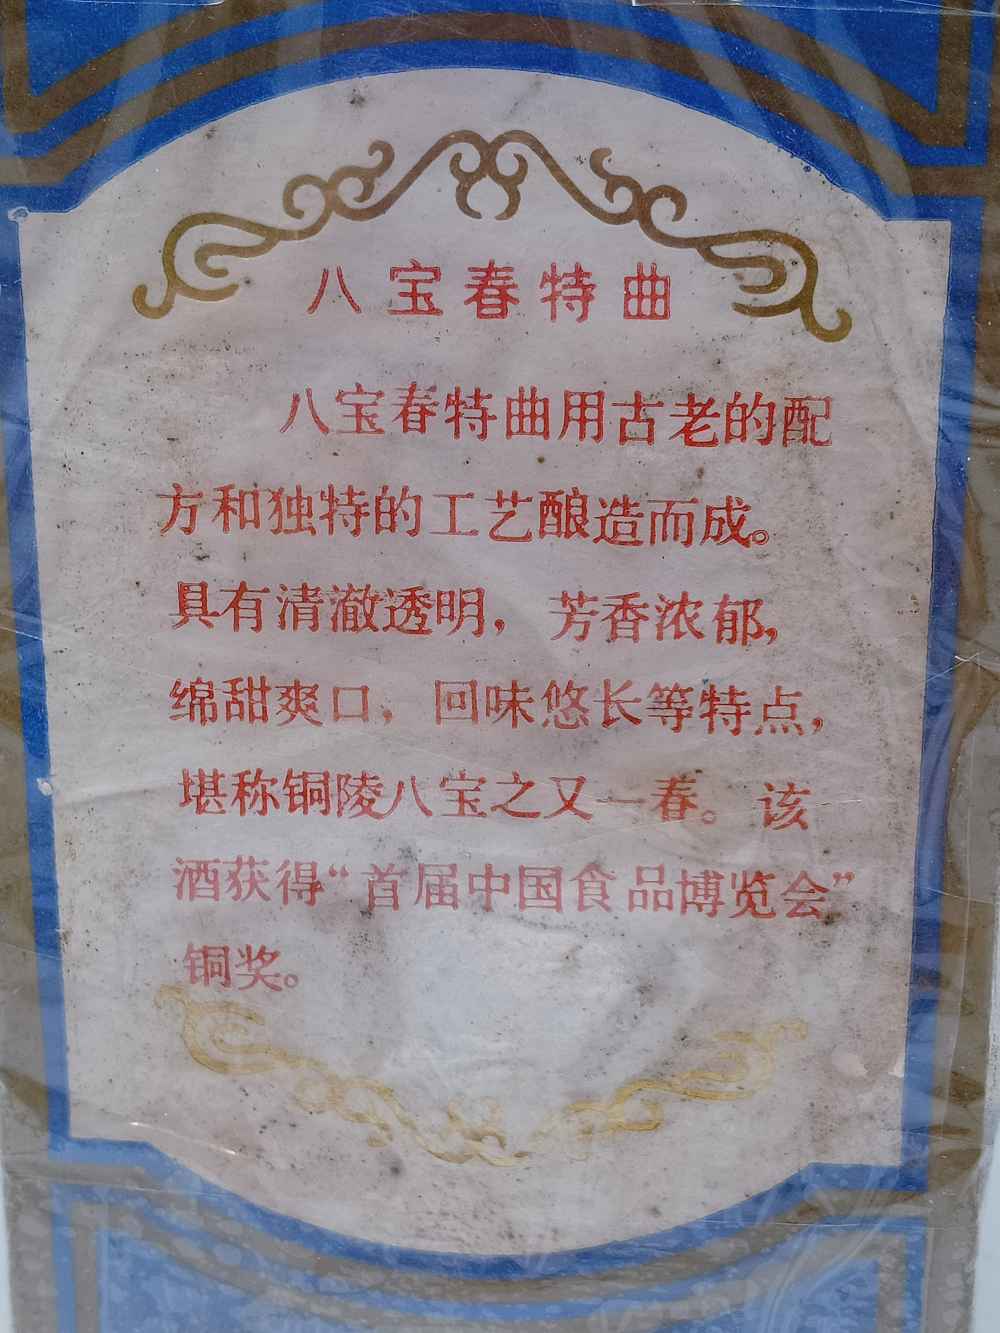 八宝春特曲
八宝春特曲用古老的配
方和独特的工艺酿造而成。
具有清澈透明，芳香浓郁，
绵甜爽口，回味悠长等特点，
堪称铜陵八宝之又一春。该
酒获得“首届中国食品博览会”
铜奖。